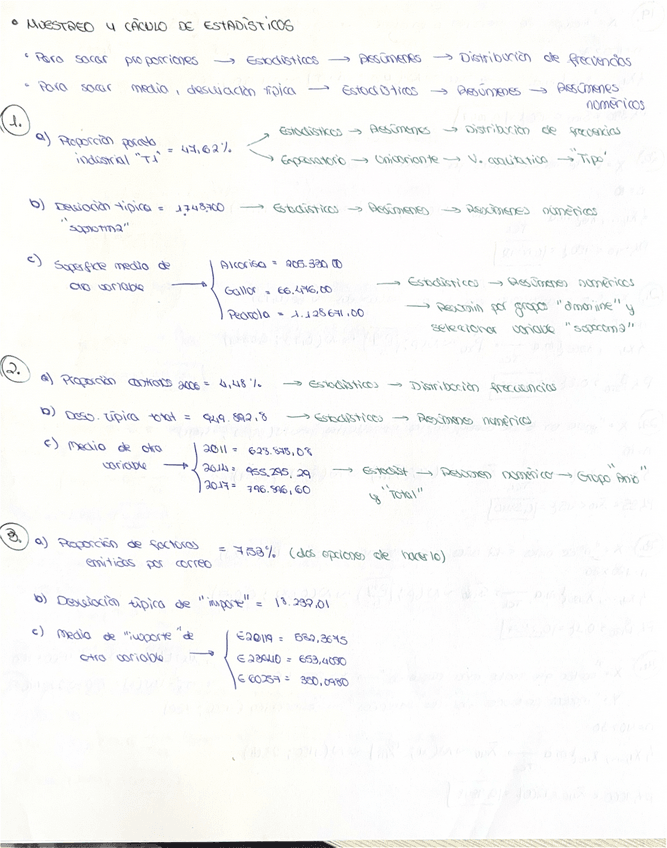 • MUESTREO Y CÁCULO DE ESTADÍSTICOS
· Para sacar proporciones → Estadísticos → Resúmenes → Distribución de frecuencias
· Para sacar media, desviación típica → Estadísticos → Resúmenes → Resúmenes numéricos
1.
a) Proporción parcela industrial "T1" = 47,62%
→ Estadísticos → Resúmenes → Distribución de frecuencias
→ Exploratorio → Univariante → V. cualitativa → "Tipo"
b) Desviación típica "supcatm2" = → Estadísticos → Resúmenes → Resúmenes numéricos
c) Superficie media de otra variable →
Alcorisa =
Gallur =
Pedrola = 1.128671,00
→ Estadísticos → Resúmenes numéricos
→ Resumir por grupos y seleccionar variable
2.
a) Proporción contratos 2006 = 4,48% → Estadísticos → Distribución frecuencias
b) Desv. típica total = 949.892.8 → Estadísticos → Resúmenes numéricos
c) Media de otra variable →
2011 = 623.575,08
2014 = 955.295,29
2017 = 796.396,60
→ Estadíst → Resumen numérico → Grupo "Anio" y "Total"
3.
a) Proporción de facturas emitidas por correo = 7,53% (dos opciones de hacerlo)
b) Desviación típica de "importe" = 13.297,01
c) Media de "importe" de otra variable →
E20119 = 582,3675
E23040 = 653,4050
E60257 = 350,0980